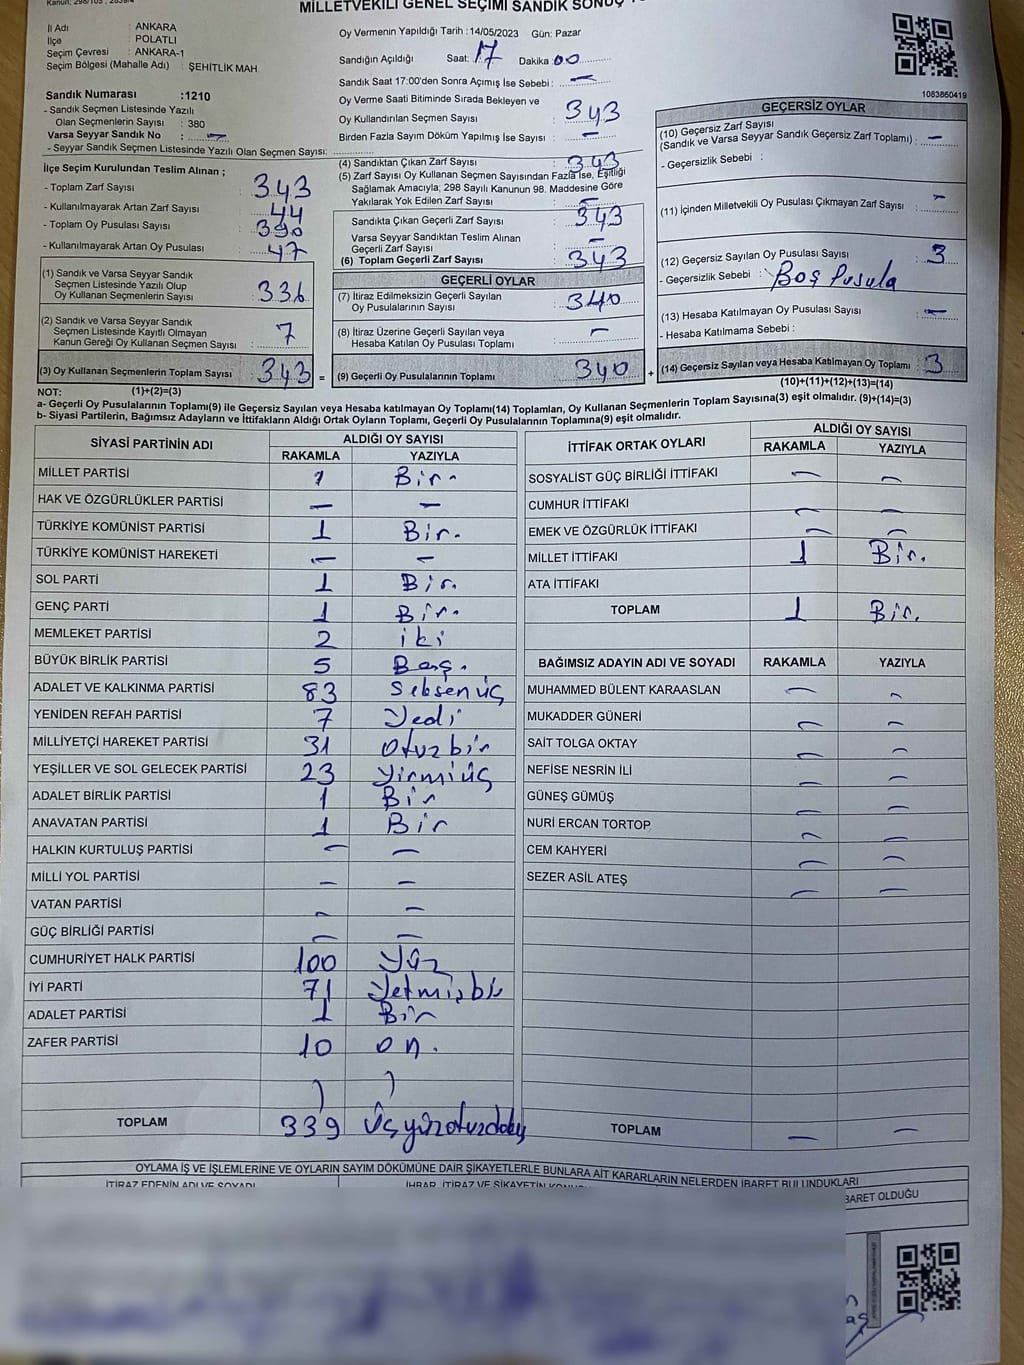 MİLLETVEKİLİ GENEL SEÇİMİ SANDIK SONUÇ
İl Adı : ANKARA
İlçe : POLATLI
Seçim Çevresi : ANKARA-1
Seçim Bölgesi (Mahalle Adı) : ŞEHİTLİK MAH
Oy Vermenin Yapıldığı Tarih : 14/05/2023 Gün: Pazar
Sandığın Açıldığı Saat: 17 Dakika 00
Sandık Saat 17:00'den Sonra Açımış İse Sebebi : —
1083860419
Sandık Numarası :1210
- Sandık Seçmen Listesinde Yazılı
Olan Seçmenlerin Sayısı : 380
Varsa Seyyar Sandık No : —
- Seyyar Sandık Seçmen Listesinde Yazılı Olan Seçmen Sayısı:
Oy Verme Saati Bitiminde Sırada Bekleyen ve
Oy Kullandırılan Seçmen Sayısı : 343
Birden Fazla Sayım Döküm Yapılmış İse Sayısı : —
İlçe Seçim Kurulundan Teslim Alınan ;
- Toplam Zarf Sayısı : 343
- Kullanılmayarak Artan Zarf Sayısı : 44
- Toplam Oy Pusulası Sayısı : 390
- Kullanılmayarak Artan Oy Pusulası : 47
(1) Sandık ve Varsa Seyyar Sandık
Seçmen Listesinde Yazılı Olup
Oy Kullanan Seçmenlerin Sayısı : 336
(2) Sandık ve Varsa Seyyar Sandık
Seçmen Listesinde Kayıtlı Olmayan
Kanun Gereği Oy Kullanan Seçmen Sayısı : 7
(3) Oy Kullanan Seçmenlerin Toplam Sayısı : 343 =
(4) Sandıktan Çıkan Zarf Sayısı : 343
(5) Zarf Sayısı Oy Kullanan Seçmen Sayısından Fazla İse, Eşitliği
Sağlamak Amacıyla; 298 Sayılı Kanunun 98. Maddesine Göre
Yakılarak Yok Edilen Zarf Sayısı : —
Sandıkta Çıkan Geçerli Zarf Sayısı : 343
Varsa Seyyar Sandıktan Teslim Alınan
Geçerli Zarf Sayısı : —
(6) Toplam Geçerli Zarf Sayısı : 343
GEÇERLİ OYLAR
(7) İtiraz Edilmeksizin Geçerli Sayılan
Oy Pusulalarının Sayısı : 340
(8) İtiraz Üzerine Geçerli Sayılan veya
Hesaba Katılan Oy Pusulası Toplamı : —
(9) Geçerli Oy Pusulalarının Toplamı : 340 +
GEÇERSİZ OYLAR
(10) Geçersiz Zarf Sayısı
(Sandık ve Varsa Seyyar Sandık Geçersiz Zarf Toplamı) : —
- Geçersizlik Sebebi :
(11) İçinden Milletvekili Oy Pusulası Çıkmayan Zarf Sayısı : —
(12) Geçersiz Sayılan Oy Pusulası Sayısı : 3
- Geçersizlik Sebebi : Boş Pusula
(13) Hesaba Katılmayan Oy Pusulası Sayısı : —
- Hesaba Katılmama Sebebi :
(14) Geçersiz Sayılan veya Hesaba Katılmayan Oy Toplamı : 3
NOT: (1)+(2)=(3)
(10)+(11)+(12)+(13)=(14)
a- Geçerli Oy Pusulalarının Toplamı(9) ile Geçersiz Sayılan veya Hesaba katılmayan Oy Toplamı(14) Toplamları, Oy Kullanan Seçmenlerin Toplam Sayısına(3) eşit olmalıdır. (9)+(14)=(3)
b- Siyasi Partilerin, Bağımsız Adayların ve İttifakların Aldığı Ortak Oyların Toplamı, Geçerli Oy Pusulalarının Toplamına(9) eşit olmalıdır.
SİYASİ PARTİNİN ADI ALDIĞI OY SAYISI
RAKAMLA YAZIYLA
MİLLET PARTİSİ 1 Bir.
HAK VE ÖZGÜRLÜKLER PARTİSİ — —
TÜRKİYE KOMÜNİST PARTİSİ 1 Bir.
TÜRKİYE KOMÜNİST HAREKETİ — —
SOL PARTİ 1 Bir.
GENÇ PARTİ 1 Bir.
MEMLEKET PARTİSİ 2 iki
BÜYÜK BİRLİK PARTİSİ 5 Beş.
ADALET VE KALKINMA PARTİSİ 83 Seksenüç
YENİDEN REFAH PARTİSİ 7 Yedi
MİLLİYETÇİ HAREKET PARTİSİ 31 Otuzbir
YEŞİLLER VE SOL GELECEK PARTİSİ 23 Yirmiüç
ADALET BİRLİK PARTİSİ 1 Bir
ANAVATAN PARTİSİ 1 Bir
HALKIN KURTULUŞ PARTİSİ — —
MİLLİ YOL PARTİSİ — —
VATAN PARTİSİ — —
GÜÇ BİRLİĞİ PARTİSİ — —
CUMHURİYET HALK PARTİSİ 100 Yüz
İYİ PARTİ 71 Yetmişbir
ADALET PARTİSİ 1 Bir
ZAFER PARTİSİ 10 on.
TOPLAM 339 Üçyüzotuzdokuz
İTTİFAK ORTAK OYLARI ALDIĞI OY SAYISI
RAKAMLA YAZIYLA
SOSYALİST GÜÇ BİRLİĞİ İTTİFAKI — —
CUMHUR İTTİFAKI — —
EMEK VE ÖZGÜRLÜK İTTİFAKI — —
MİLLET İTTİFAKI 1 Bir.
ATA İTTİFAKI
TOPLAM 1 Bir.
BAĞIMSIZ ADAYIN ADI VE SOYADI RAKAMLA YAZIYLA
MUHAMMED BÜLENT KARAASLAN — —
MUKADDER GÜNERİ — —
SAİT TOLGA OKTAY — —
NEFİSE NESRİN İLİ — —
GÜNEŞ GÜMÜŞ — —
NURİ ERCAN TORTOP — —
CEM KAHYERİ — —
SEZER ASİL ATEŞ — —
TOPLAM — —
OYLAMA İŞ VE İŞLEMLERİNE VE OYLARIN SAYIM DÖKÜMÜNE DAİR ŞİKAYETLERLE BUNLARA AİT KARARLARIN NELERDEN İBARET BULUNDUKLARI
İTİRAZ EDENİN ADI VE SOYADI İHBAR, İTİRAZ VE ŞİKAYETİN
BARET OLDUĞU